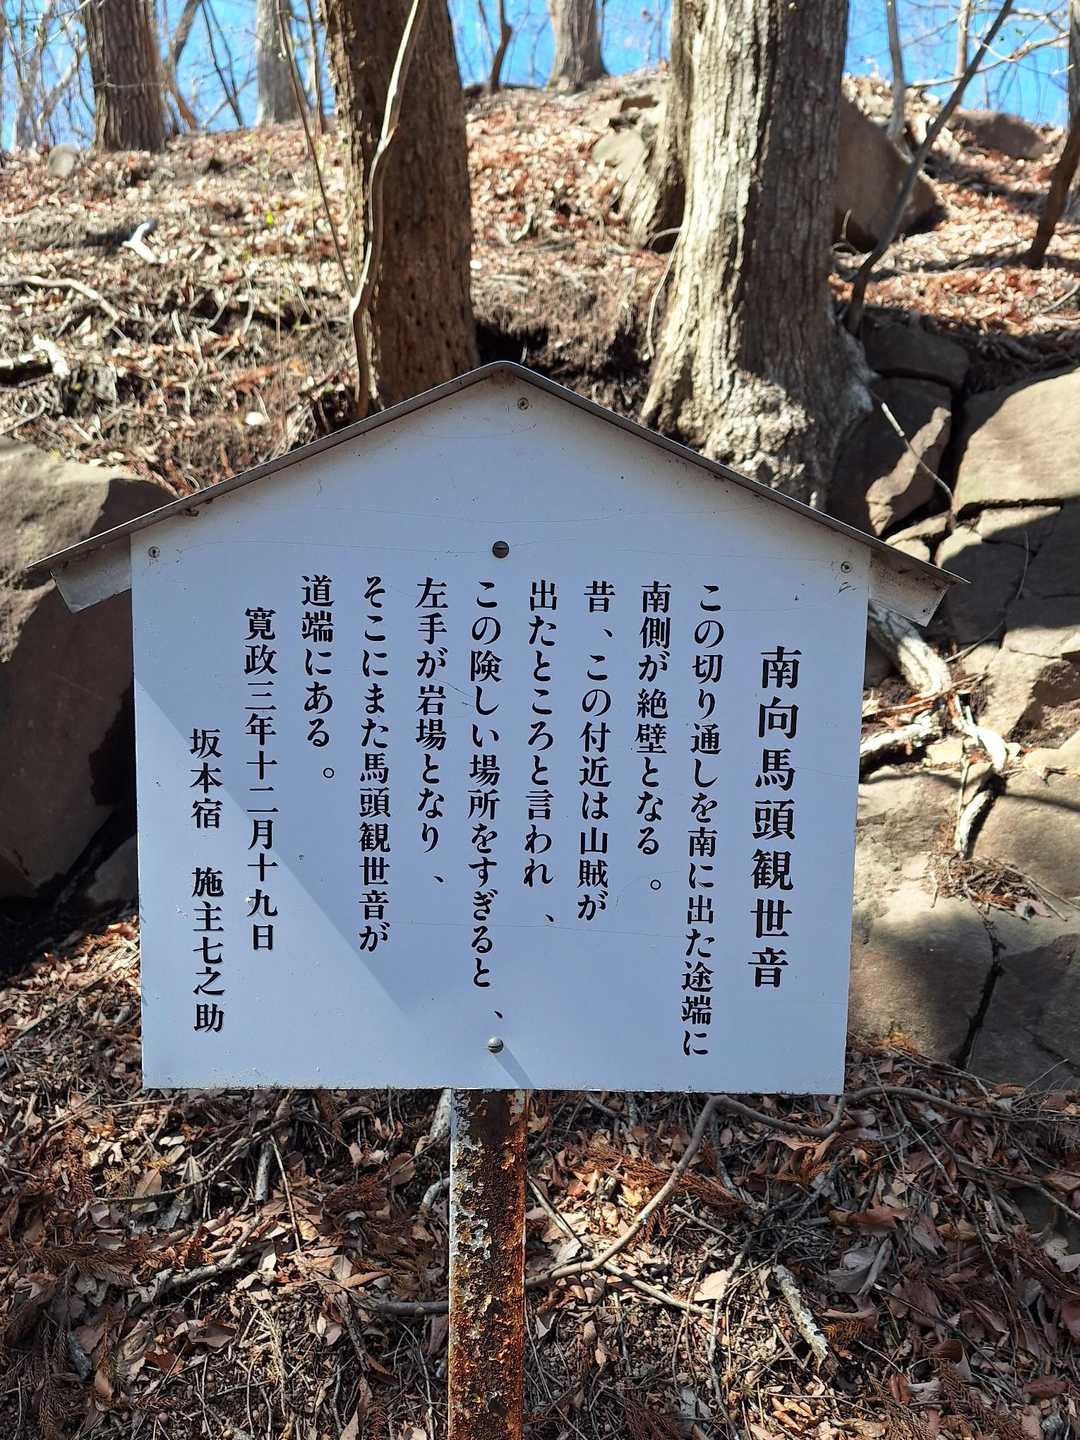 南向馬頭観世音
この切り通しを南に出た途端に
南側が絶壁となる。
昔、この付近は山賊が
出たところと言われ、
この険しい場所をすぎると、
左手が岩場となり、
そこにまた馬頭観世音が
道端にある。
寛政三年十二月十九日
坂本宿　施主七之助